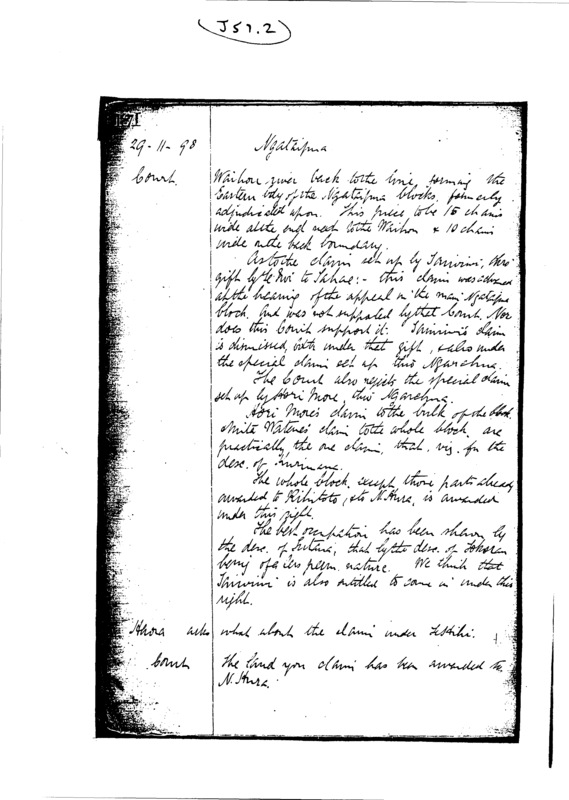 J51.2
171
29-11-98 Ngataipua
Court. Waihou river back to the line, forming the
Eastern bdy of the Ngataipua blocks, formerly
adjudicated upon. This piece to be 15 chains
wide at the end next to the Waihou & 10 chains
wide on the back boundary.
As to the claim set up by Tawiwi, thro'
gift by to Tahae:- this claim was advanced
at the hearing of the appeal in the main Ngataipua
block, and was not supported by that Court. Nor
does this Court support it. claim
is dismissed, both under that gift, & also under
the special claim set up thro' Ngarehua.
The Court also rejects the special claim
set up by Hori More, thro' Ngarehua.
Hori More's claim to the bulk of the block
claim to the whole block are
practically the one claim, that, viz. fr. the
desc. of
The whole block, except those parts already
awarded to & to N. Hura, is awarded
under this right.
The best occupation has been shewn by
the desc. of that by the desc. of
being of a less perm. nature. We think that
is also entitled to come in under this
right.
Haora asks what about the claim under
Court The land you claim has been awarded to
N. Hura.